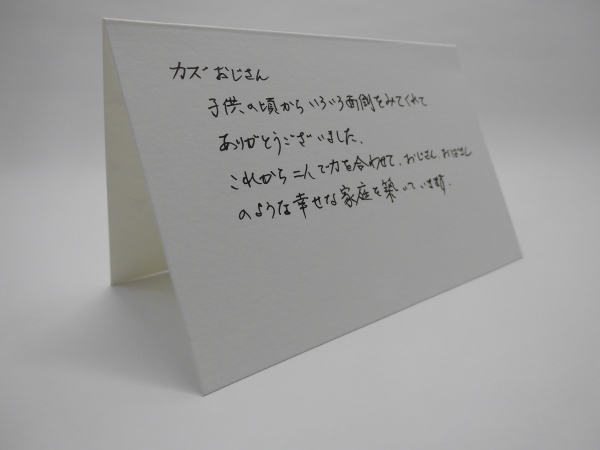 カズおじさん
子供の頃からいろいろ面倒をみてくれて
ありがとうございました。
これから二人で力を合わせて、おじさん、おばさん
のような幸せな家庭を築いていきます。